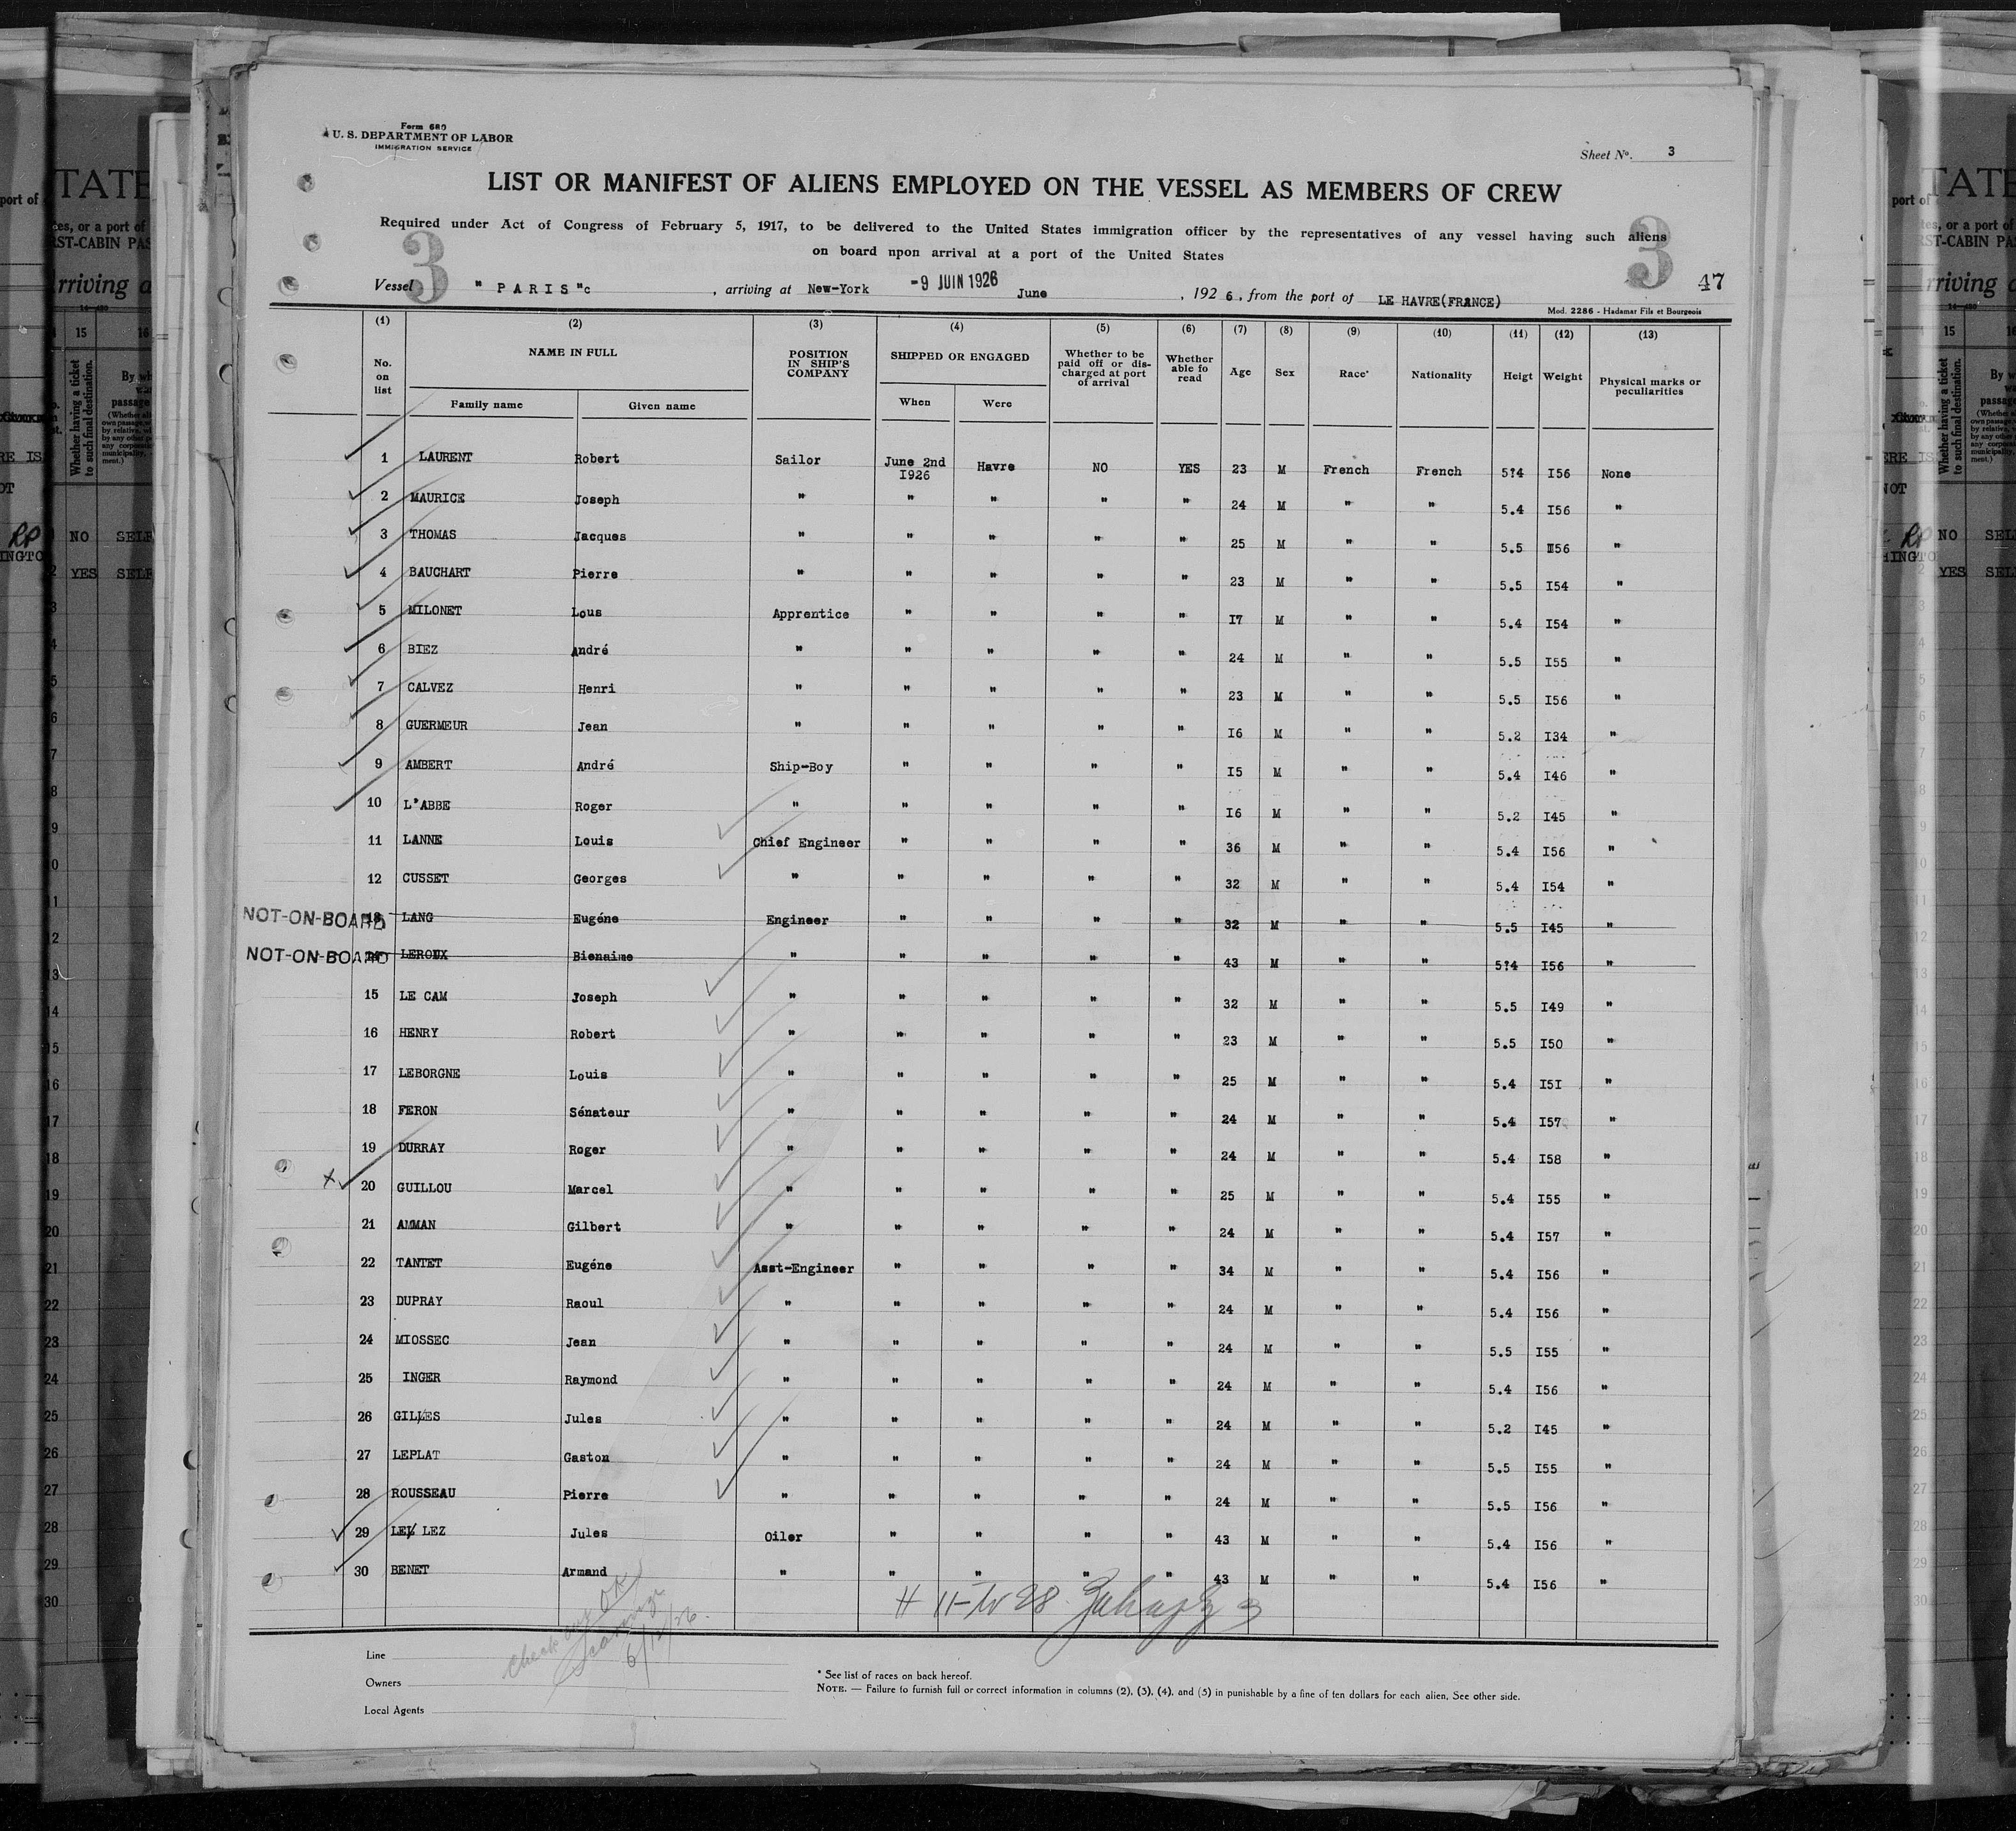 Form 680
U. S. DEPARTMENT OF LABOR
IMMIGRATION SERVICE
Sheet No. 3
LIST OR MANIFEST OF ALIENS EMPLOYED ON THE VESSEL AS MEMBERS OF CREW
Required under Act of Congress of February 5, 1917, to be delivered to the United States immigration officer by the representatives of any vessel having such aliens
on board npon arrival at a port of the United States
3 3
Vessel " PARIS "c , arriving at New-York -9 JUIN 1926 June , 192 6 , from the port of LE HAVRE(FRANCE) 47
Mod. 2286 - Hadamar Fils et Bourgeois
(1) (2) (3) (4) (5) (6) (7) (8) (9) (10) (11) (12) (13)
No. on list NAME IN FULL Family name Given name POSITION IN SHIP'S COMPANY SHIPPED OR ENGAGED When Were Whether to be paid off or discharged at port of arrival Whether able fo read Age Sex Race* Nationality Heigt Weight Physical marks or peculiarities
1 LAURENT Robert Sailor June 2nd I926 Havre NO YES 23 M French French 5?4 I56 None
2 MAURICE Joseph " " " " " 24 M " " 5.4 I56 "
3 THOMAS Jacques " " " " " 25 M " " 5.5 I56 "
4 BAUCHART Pierre " " " " " 23 M " " 5.5 I54 "
5 MILONET Lous Apprentice " " " " I7 M " " 5.4 I54 "
6 BIEZ André " " " " " 24 M " " 5.5 I55 "
7 CALVEZ Henri " " " " " 23 M " " 5.5 I56 "
8 GUERMEUR Jean " " " " " I6 M " " 5.2 I34 "
9 AMBERT André Ship-Boy " " " " I5 M " " 5.4 I46 "
10 L'ABBE Roger " " " " " I6 M " " 5.2 I45 "
11 LANNE Louis Chief Engineer " " " " 36 M " " 5.4 I56 "
12 CUSSET Georges " " " " " 32 M " " 5.4 I54 "
NOT-ON-BOARD 13 LANG Eugéne Engineer " " " " 32 M " " 5.5 I45 "
NOT-ON-BOARD 14 LEROUX Bienaime " " " " " 43 M " " 5?4 I56 "
15 LE CAM Joseph " " " " " 32 M " " 5.5 I49 "
16 HENRY Robert " " " " " 23 M " " 5.5 I50 "
17 LEBORGNE Louis " " " " " 25 M " " 5.4 I5I "
18 FERON Sénateur " " " " " 24 M " " 5.4 I57 "
19 DURRAY Roger " " " " " 24 M " " 5.4 I58 "
x 20 GUILLOU Marcel " " " " " 25 M " " 5.4 I55 "
21 AMMAN Gilbert " " " " " 24 M " " 5.4 I57 "
22 TANTET Eugéne Asst-Engineer " " " " 34 M " " 5.4 I56 "
23 DUPRAY Raoul " " " " " 24 M " " 5.4 I56 "
24 MIOSSEC Jean " " " " " 24 M " " 5.5 I55 "
25 INGER Raymond " " " " " 24 M " " 5.4 I56 "
26 GILLES Jules " " " " " 24 M " " 5.2 I45 "
27 LEPLAT Gaston " " " " " 24 M " " 5.5 I55 "
28 ROUSSEAU Pierre " " " " " 24 M " " 5.5 I56 "
29 LE LEZ Jules Oiler " " " " 43 M " " 5.4 I56 "
30 BENET Armand " " " " " 43 M " " 5.4 I56 "
# 11-to 28
Check out OK
6/12/26.
Line
Owners
Local Agents
* See list of races on back hereof.
NOTE. — Failure to furnish full or correct information in columns (2), (3), (4), and (5) in punishable by a fine of ten dollars for each alien, See other side.